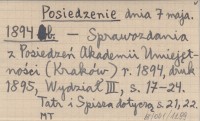 Posiedzenie dnia 7 maja.
1894 b. - Sprawozdania
z Posiedzeń Akademii Umiejęt-
ności (Kraków) r. 1894, druk
1895, Wydział III, s. 17-24.
Tatr i Spisza dotyczą s. 21, 22.
MT